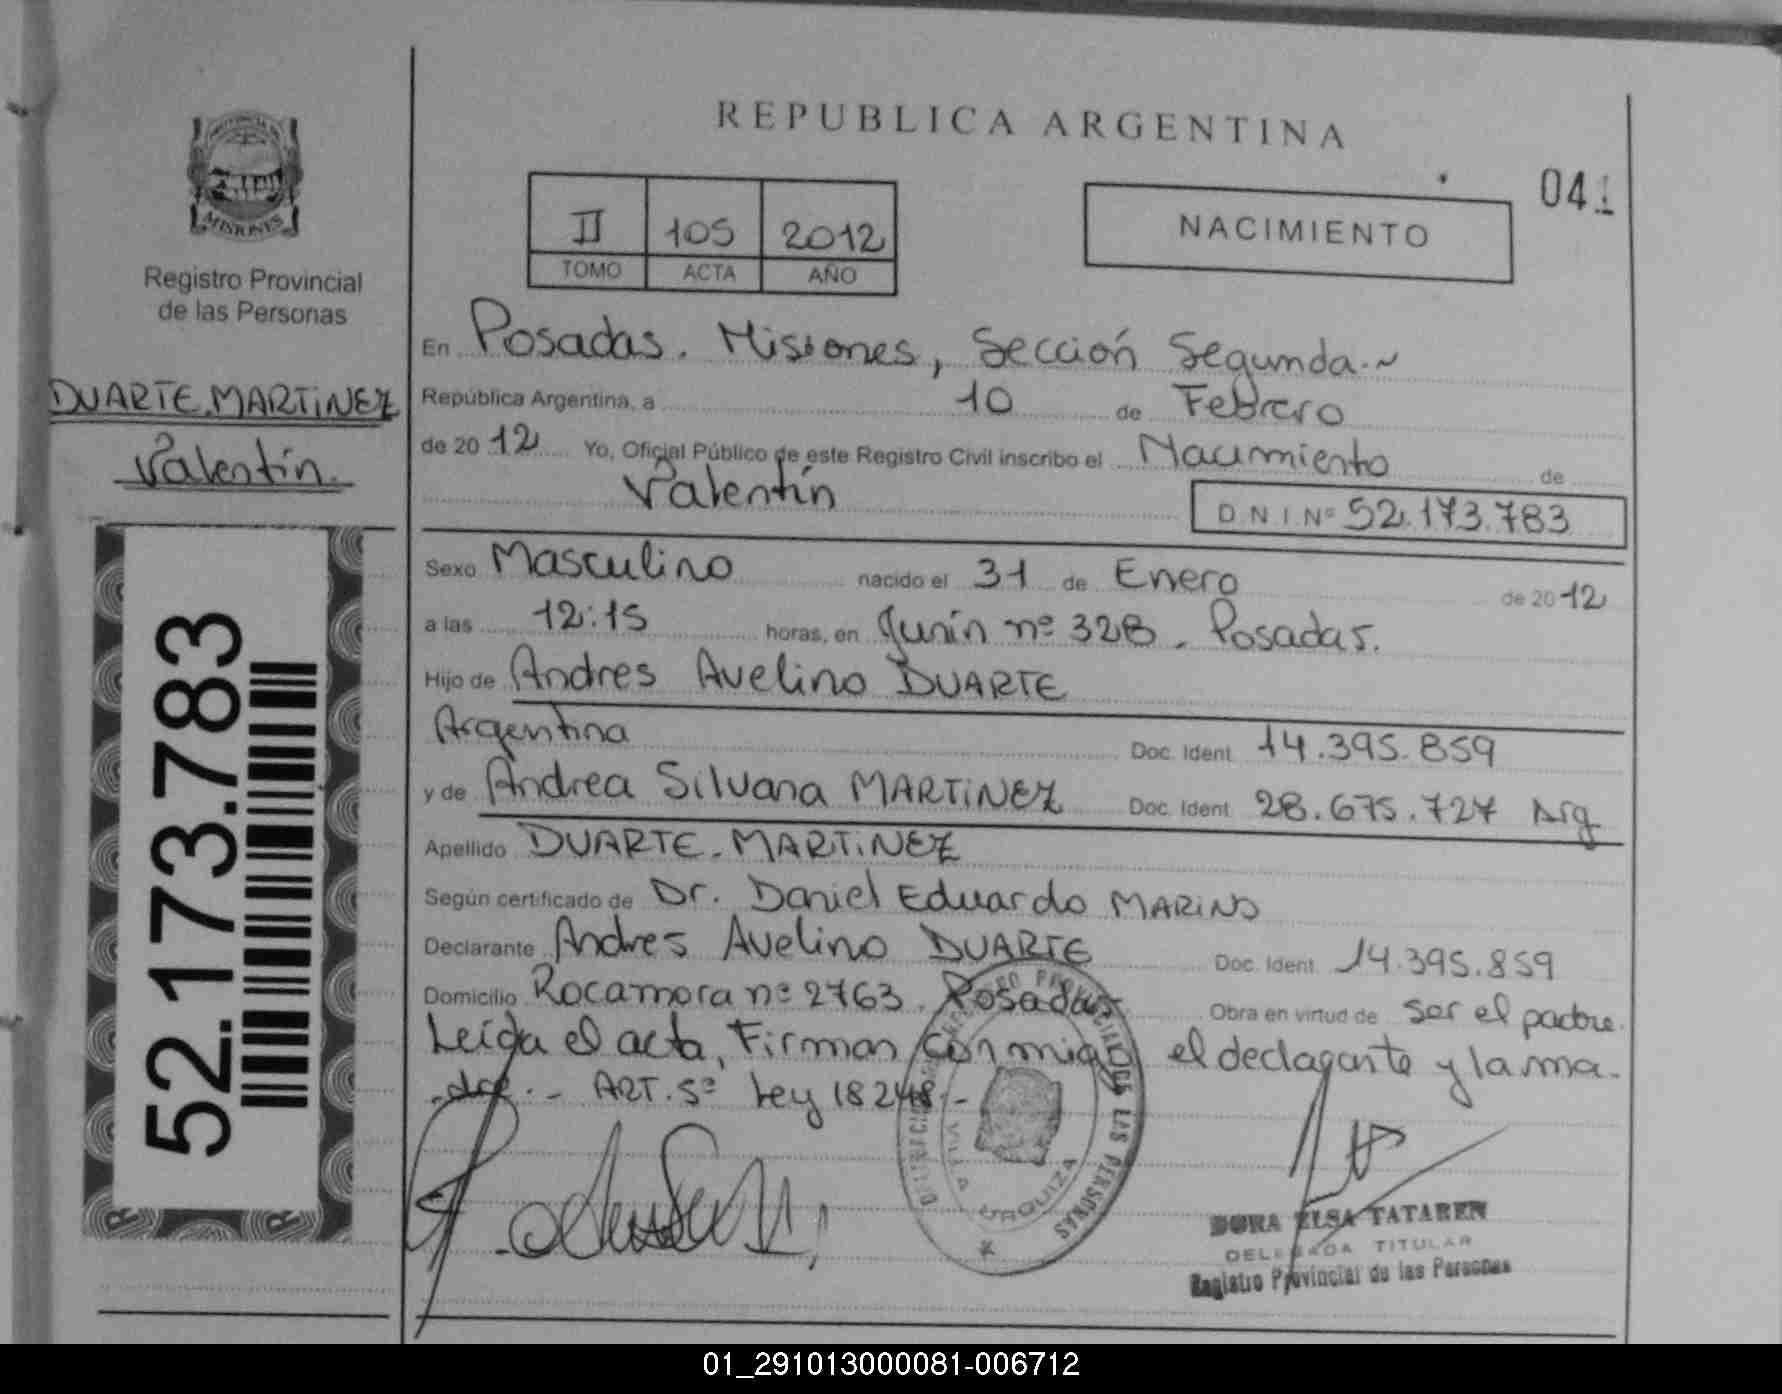 REPUBLICA ARGENTINA
041
II 105 2012
TOMO ACTA AÑO
NACIMIENTO
MISIONES
Registro Provincial
de las Personas
DUARTE MARTINEZ
Valentín.
52.173.783
En Posadas. Misiones, Sección Segunda.~
República Argentina, a 10 de Febrero
de 2012 Yo, Oficial Público de este Registro Civil inscribo el Nacimiento de
Valentín
D N I Nº 52.173.783
Sexo Masculino nacido el 31 de Enero de 2012
a las 12:15 horas, en Junín nº 328. Posadas.
Hijo de Andres Avelino DUARTE
Argentina Doc. Ident. 14.395.859
y de Andrea Silvana MARTINEZ Doc. Ident. 28.675.727 Arg
Apellido DUARTE MARTINEZ
Según certificado de Dr. Daniel Eduardo MARINO
Declarante Andres Avelino DUARTE Doc. Ident. 14.395.859
Domicilio Rocamora nº 2763. Posadas Obra en virtud de ser el padre.
Leída el acta, Firman conmigo el declarante y la ma-
dre.- ART. 5º Ley 18248.-
PROVINCIAL DE LAS PERSONAS
VILLA URQUIZA
DORA ELSA TATAREN
DELEGADA TITULAR
Registro Provincial de las Personas
01_291013000081-006712